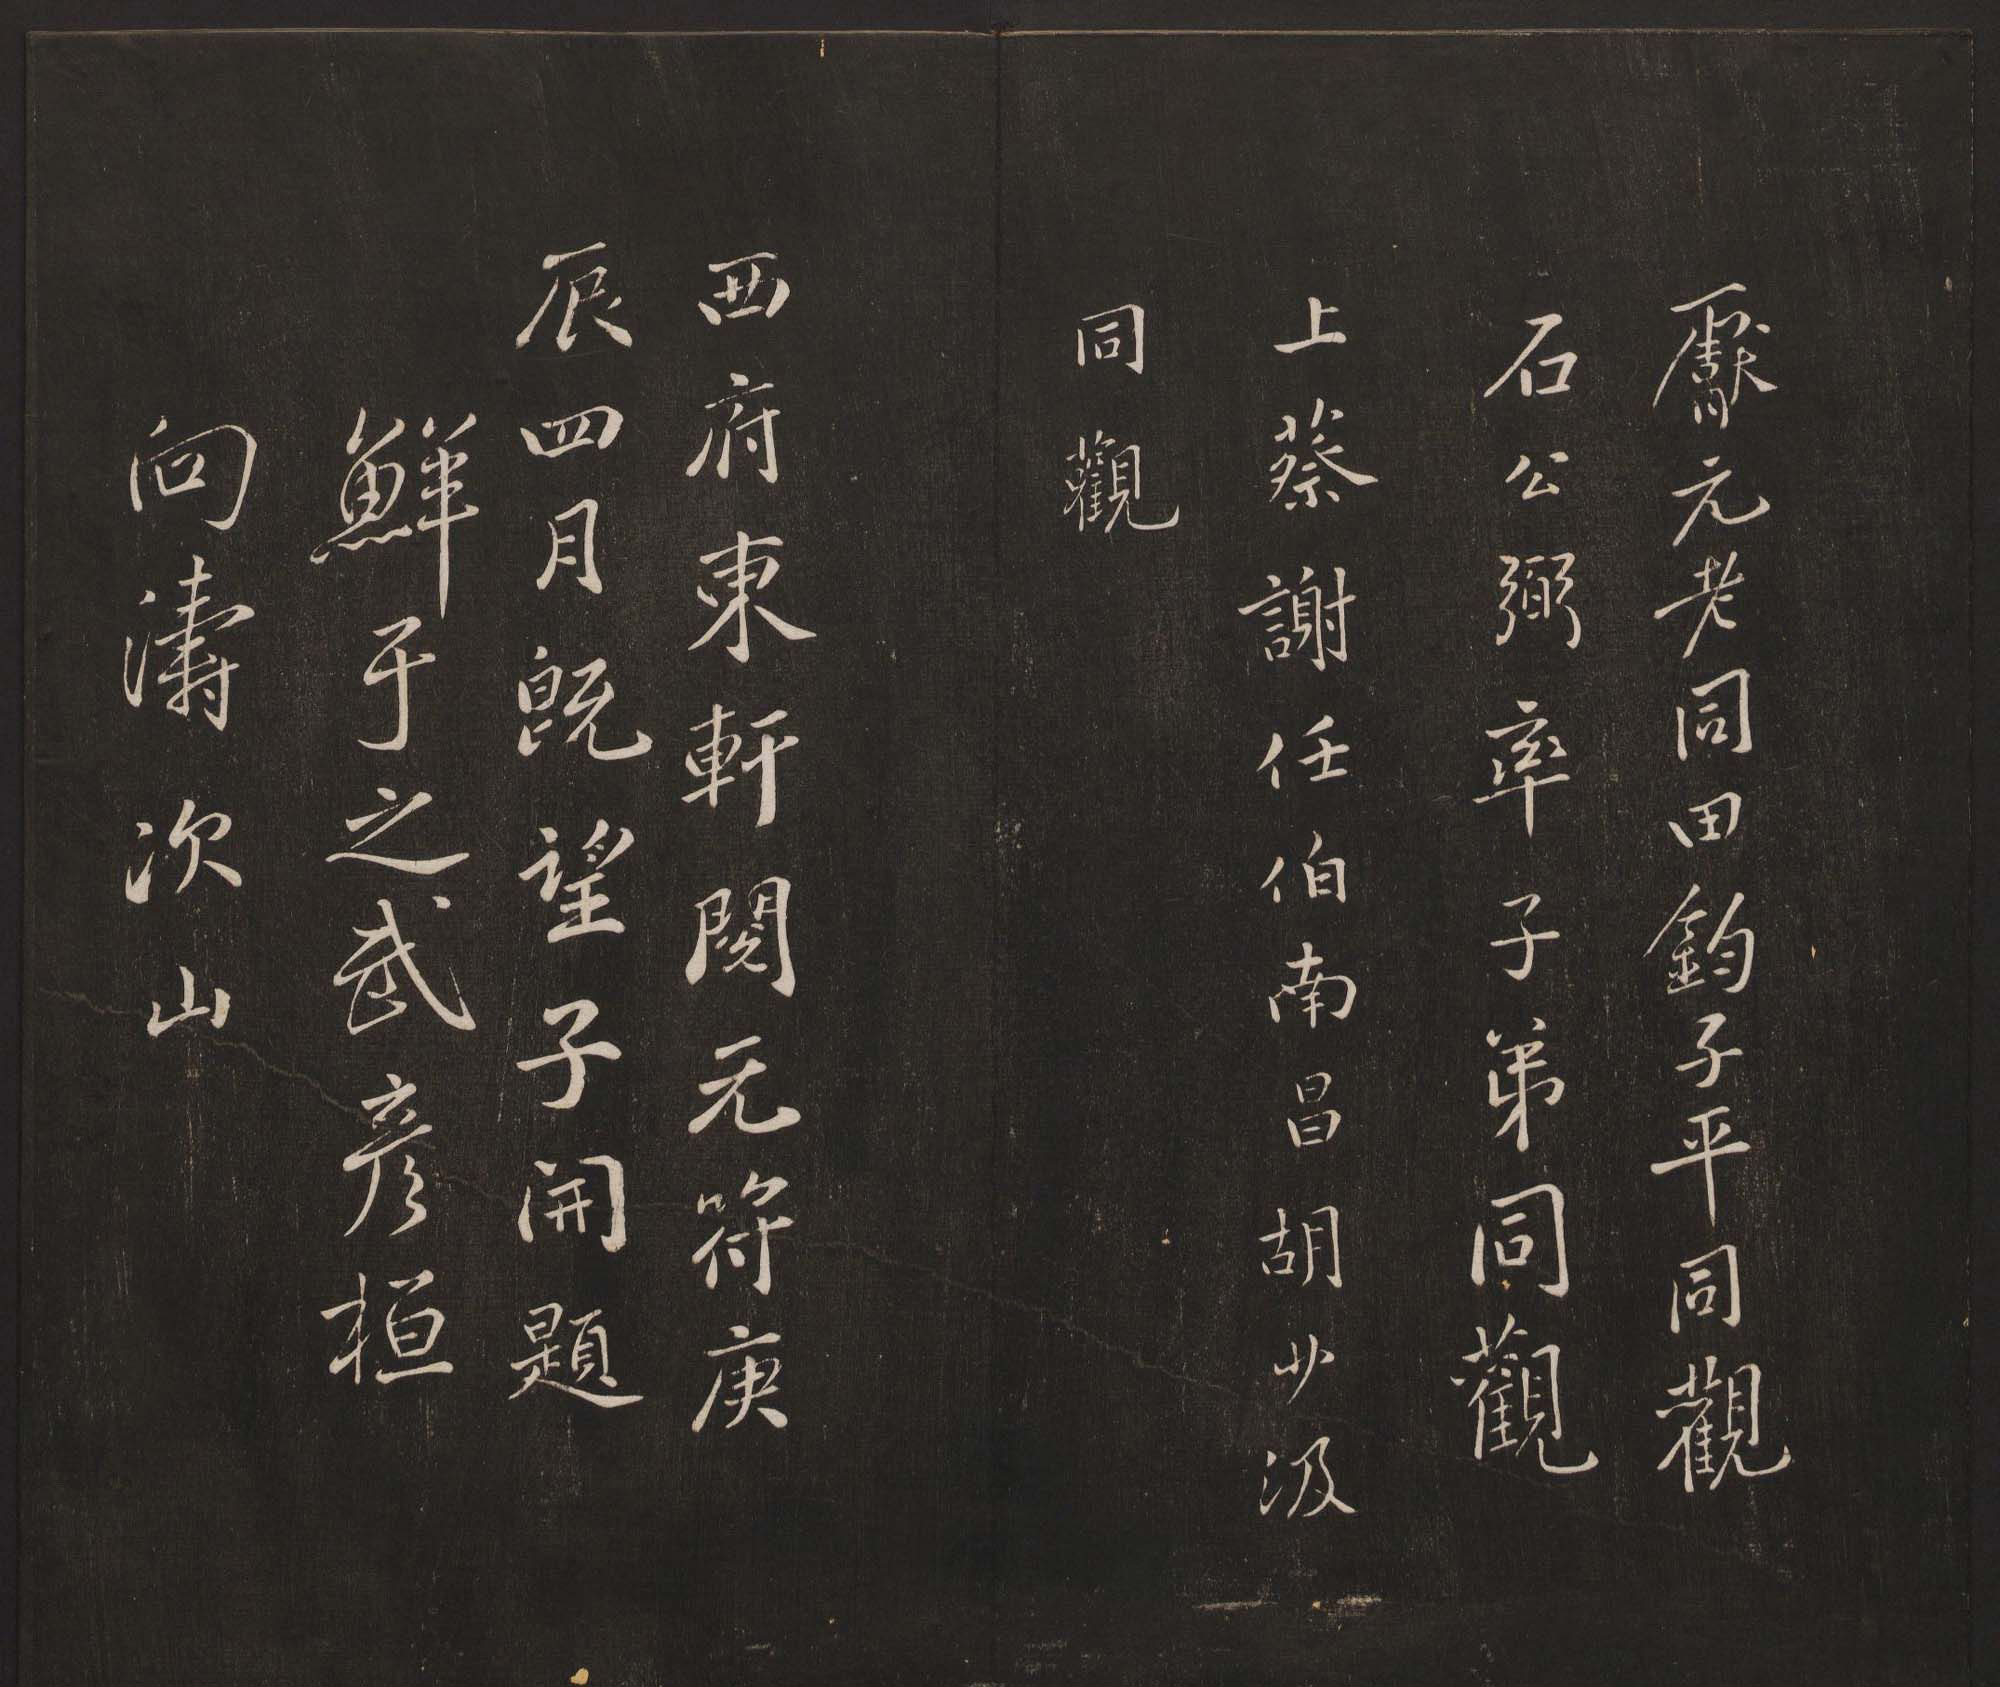 膺元老同田鈞子平同觀
石公弼率子弟同觀
上蔡謝任伯南昌胡少汲
同觀
西府東軒閱元符庚
辰四月既望子開題
鮮于之武彥桓
向濤次山